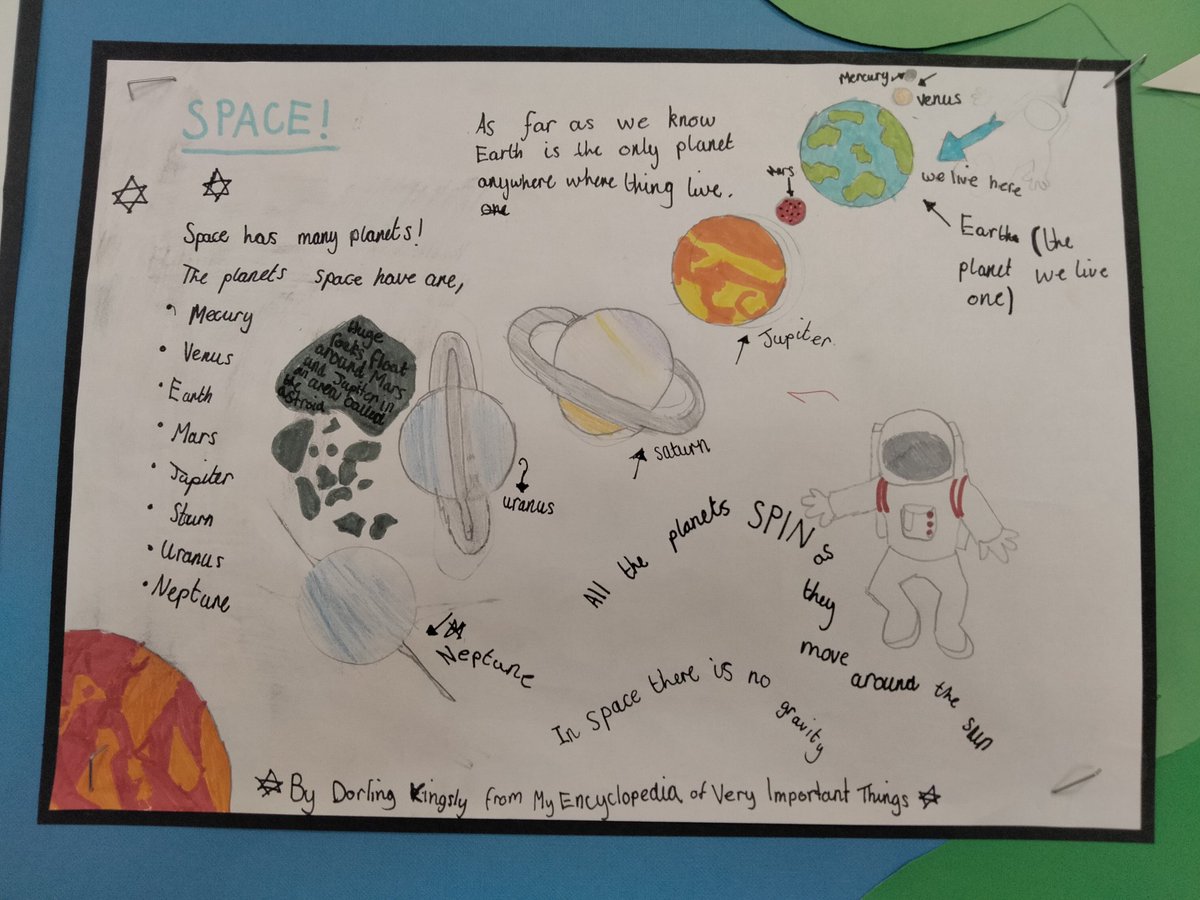 SPACE!
As far as we know
Earth is the only planet
anywhere where thing live.
one
Mercury
Venus
we live here
Earth (the
planet we live
one)
Mars
Space has many planets!
The planets space have are,
• Mecury
• Venus
• Earth
• Mars
• Jupiter
• Sturn
• Uranus
• Neptune
Huge
rocks float
around Mars
and Jupiter in
an area called
the
astroid
Jupiter
Saturn
uranus
Neptune
All the planets SPIN as they move around the sun
In Space there is no gravity
By Dorling Kingsly from My Encyclopedia of Very Important Things